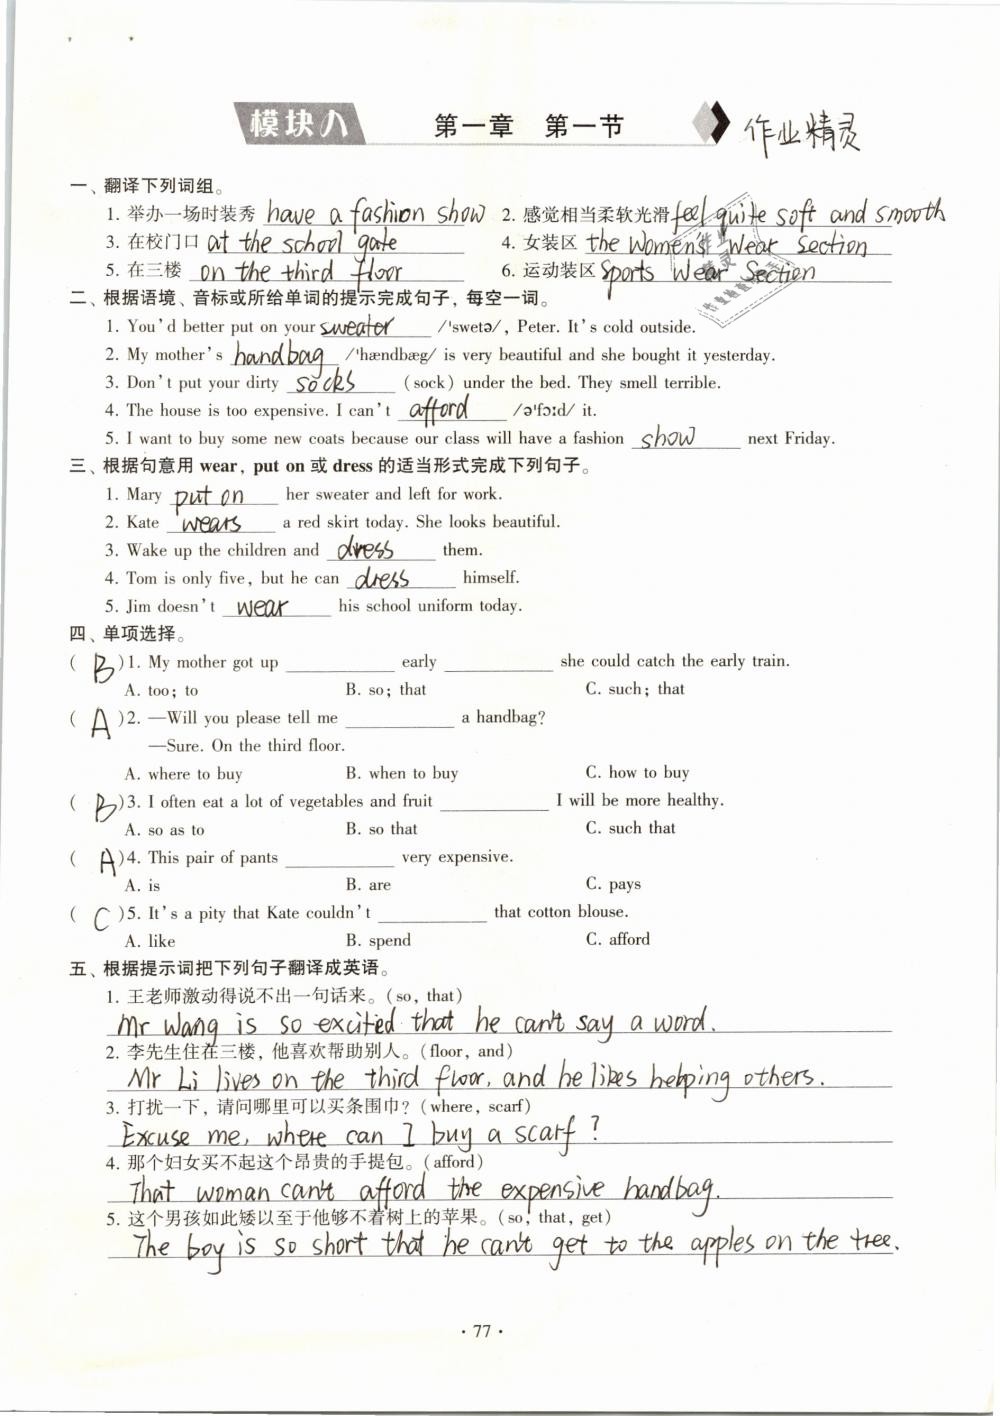 模块八 第一章 第一节 作业精灵
一、翻译下列词组。
1. 举办一场时装秀 have a fashion show 2. 感觉相当柔软光滑 feel quite soft and smooth
3. 在校门口 at the school gate 4. 女装区 the Women's Wear Section
5. 在三楼 on the third floor 6. 运动装区 Sports Wear Section
二、根据语境、音标或所给单词的提示完成句子，每空一词。
1. You'd better put on your sweater /'swetə/, Peter. It's cold outside.
2. My mother's handbag /'hændbæg/ is very beautiful and she bought it yesterday.
3. Don't put your dirty socks (sock) under the bed. They smell terrible.
4. The house is too expensive. I can't afford /ə'fɔːd/ it.
5. I want to buy some new coats because our class will have a fashion show next Friday.
三、根据句意用 wear, put on 或 dress 的适当形式完成下列句子。
1. Mary put on her sweater and left for work.
2. Kate wears a red skirt today. She looks beautiful.
3. Wake up the children and dress them.
4. Tom is only five, but he can dress himself.
5. Jim doesn't wear his school uniform today.
四、单项选择。
( B )1. My mother got up ________ early ________ she could catch the early train.
A. too; to B. so; that C. such; that
( A )2. —Will you please tell me ________ a handbag?
—Sure. On the third floor.
A. where to buy B. when to buy C. how to buy
( B )3. I often eat a lot of vegetables and fruit ________ I will be more healthy.
A. so as to B. so that C. such that
( A )4. This pair of pants ________ very expensive.
A. is B. are C. pays
( C )5. It's a pity that Kate couldn't ________ that cotton blouse.
A. like B. spend C. afford
五、根据提示词把下列句子翻译成英语。
1. 王老师激动得说不出一句话来。(so, that)
Mr Wang is so excited that he can't say a word.
2. 李先生住在三楼，他喜欢帮助别人。(floor, and)
Mr Li lives on the third floor, and he likes helping others.
3. 打扰一下，请问哪里可以买条围巾？(where, scarf)
Excuse me, where can I buy a scarf?
4. 那个妇女买不起这个昂贵的手提包。(afford)
That woman can't afford the expensive handbag.
5. 这个男孩如此矮以至于他够不着树上的苹果。(so, that, get)
The boy is so short that he can't get to the apples on the tree.
· 77 ·